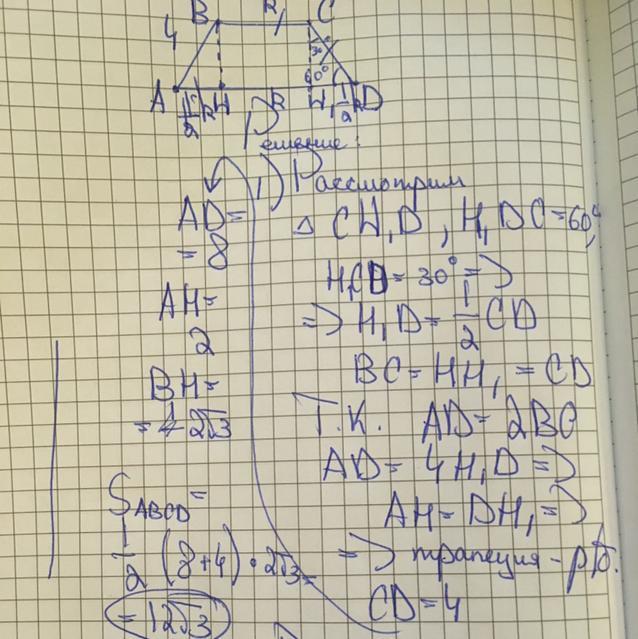 B R C
4
30°
60°
A H R H₁ D
Решение:
1) Рассмотрим
△ CH₁D, H₁DC=60°,
H₁CD=30° =>
=> H₁D=1/2 CD
BC=HH₁=CD
Т.К. AD=2BC
AD=4H₁D =>
AH=DH₁ =>
=> трапеция-рб.
CD=4
AD=
=8
AH=
2
BH=
=2√3
S ABCD=
1/2 (8+4)·2√3=
=12√3